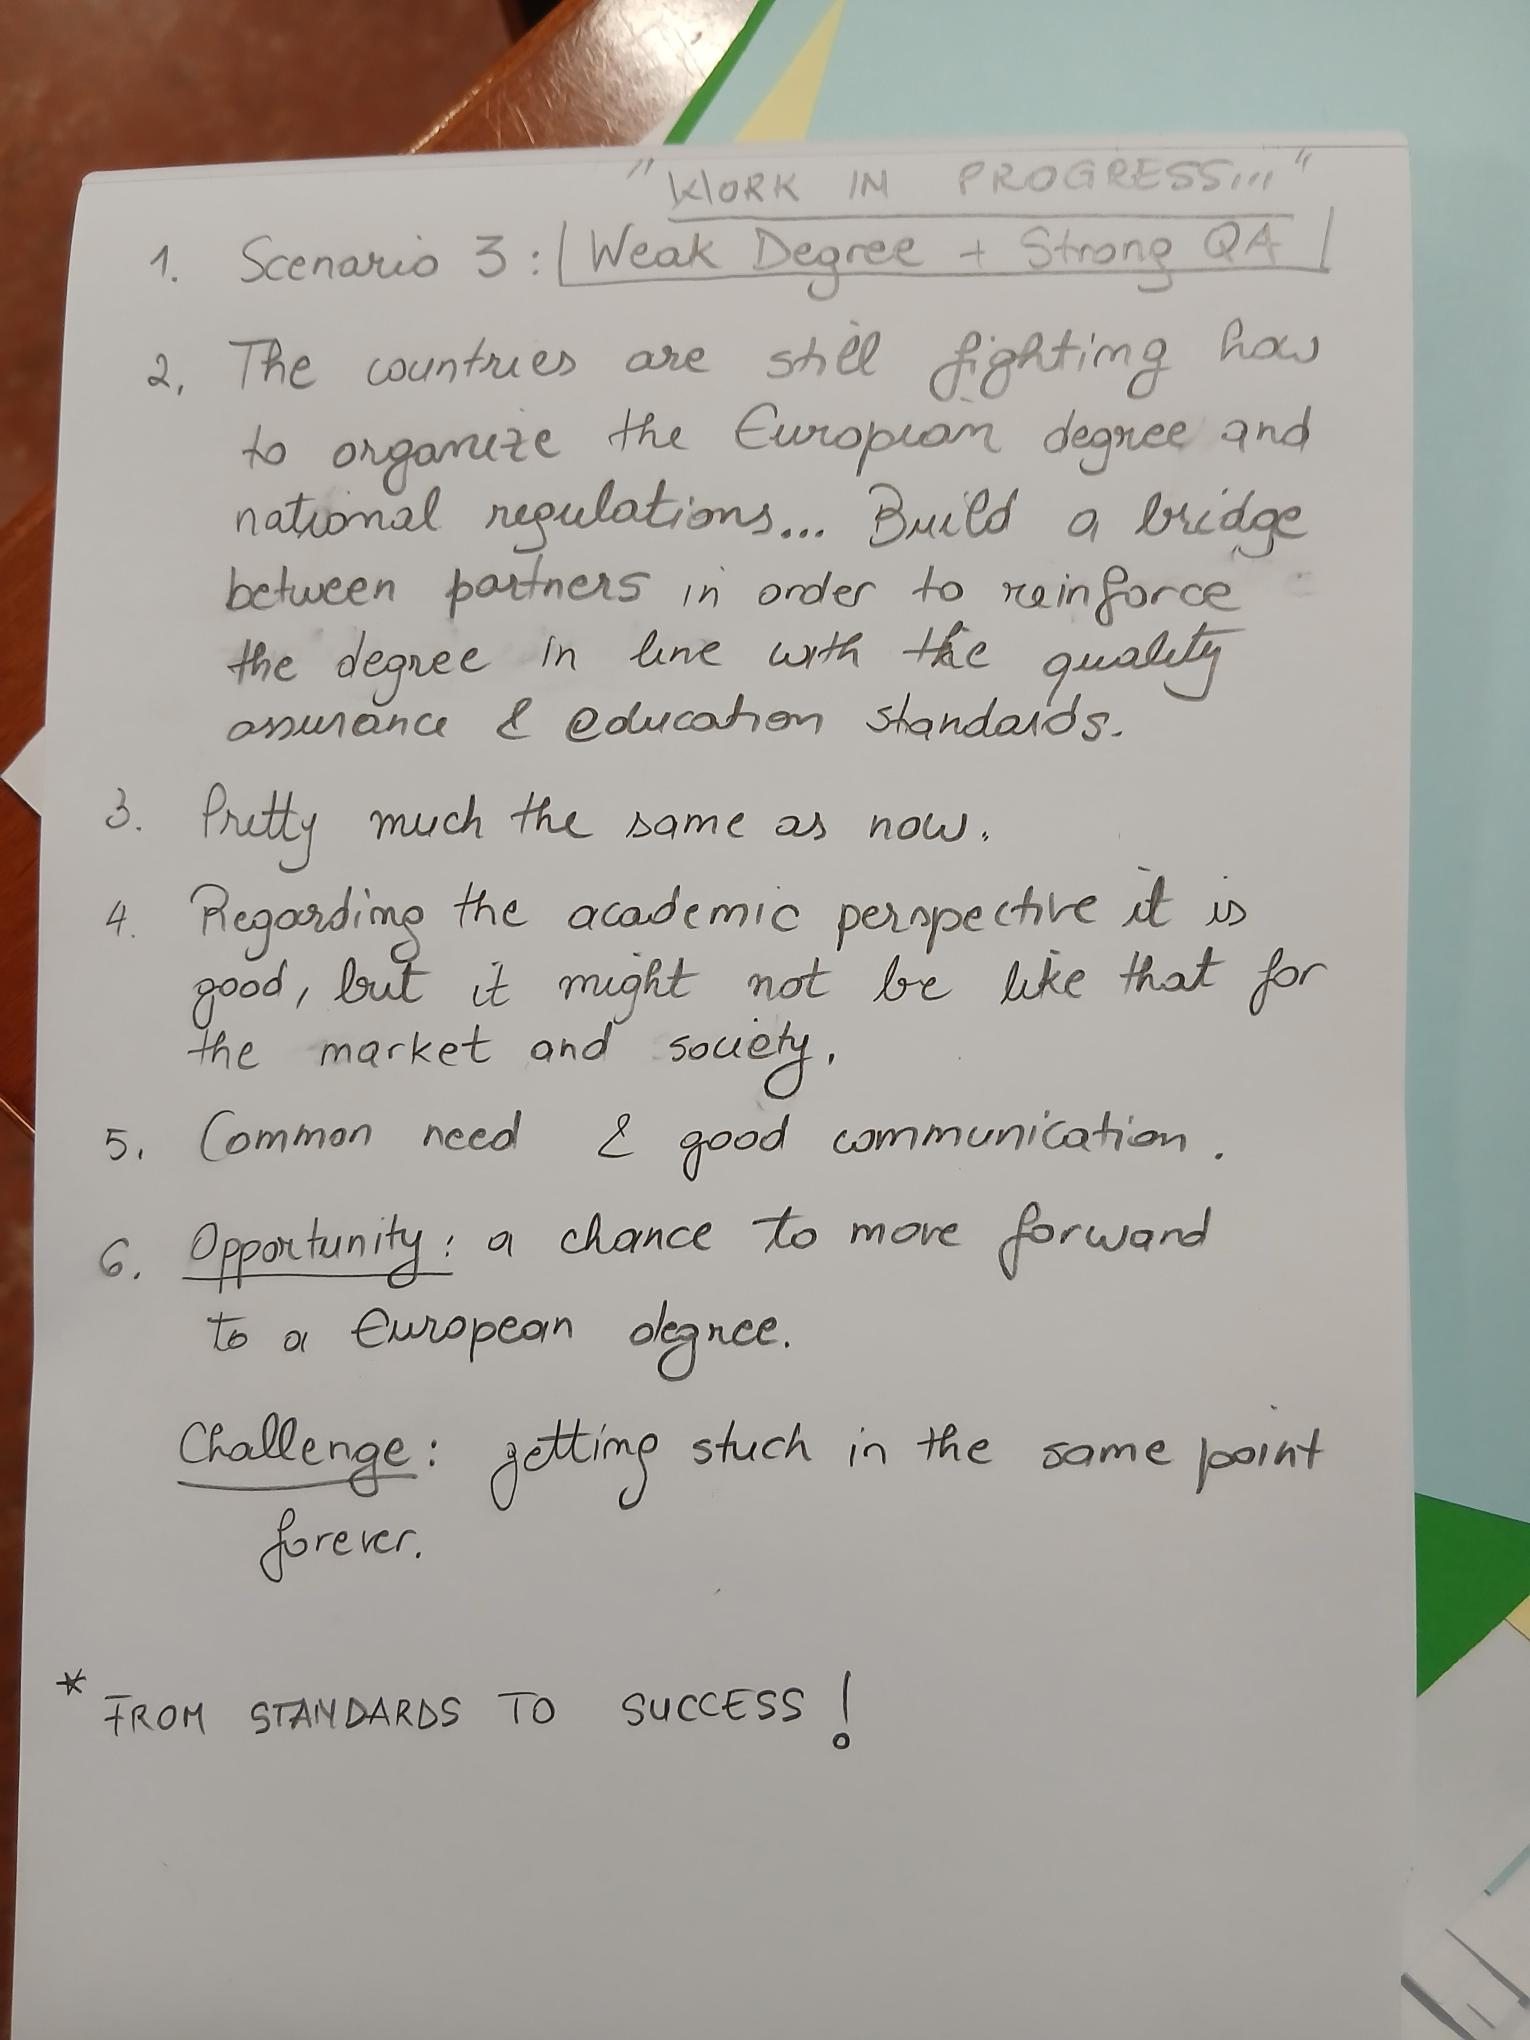 "WORK IN PROGRESS..."
1. Scenario 3: Weak Degree + Strong QA
2. The countries are still fighting how
to organize the European degree and
national regulations... Build a bridge
between partners in order to reinforce
the degree in line with the quality
assurance & education standards.
3. Pretty much the same as now.
4. Regarding the academic perspective it is
good, but it might not be like that for
the market and society.
5. Common need & good communication.
6. Opportunity: a chance to move forward
to a European degree.
Challenge: getting stuck in the same point
forever.
* FROM STANDARDS TO SUCCESS!